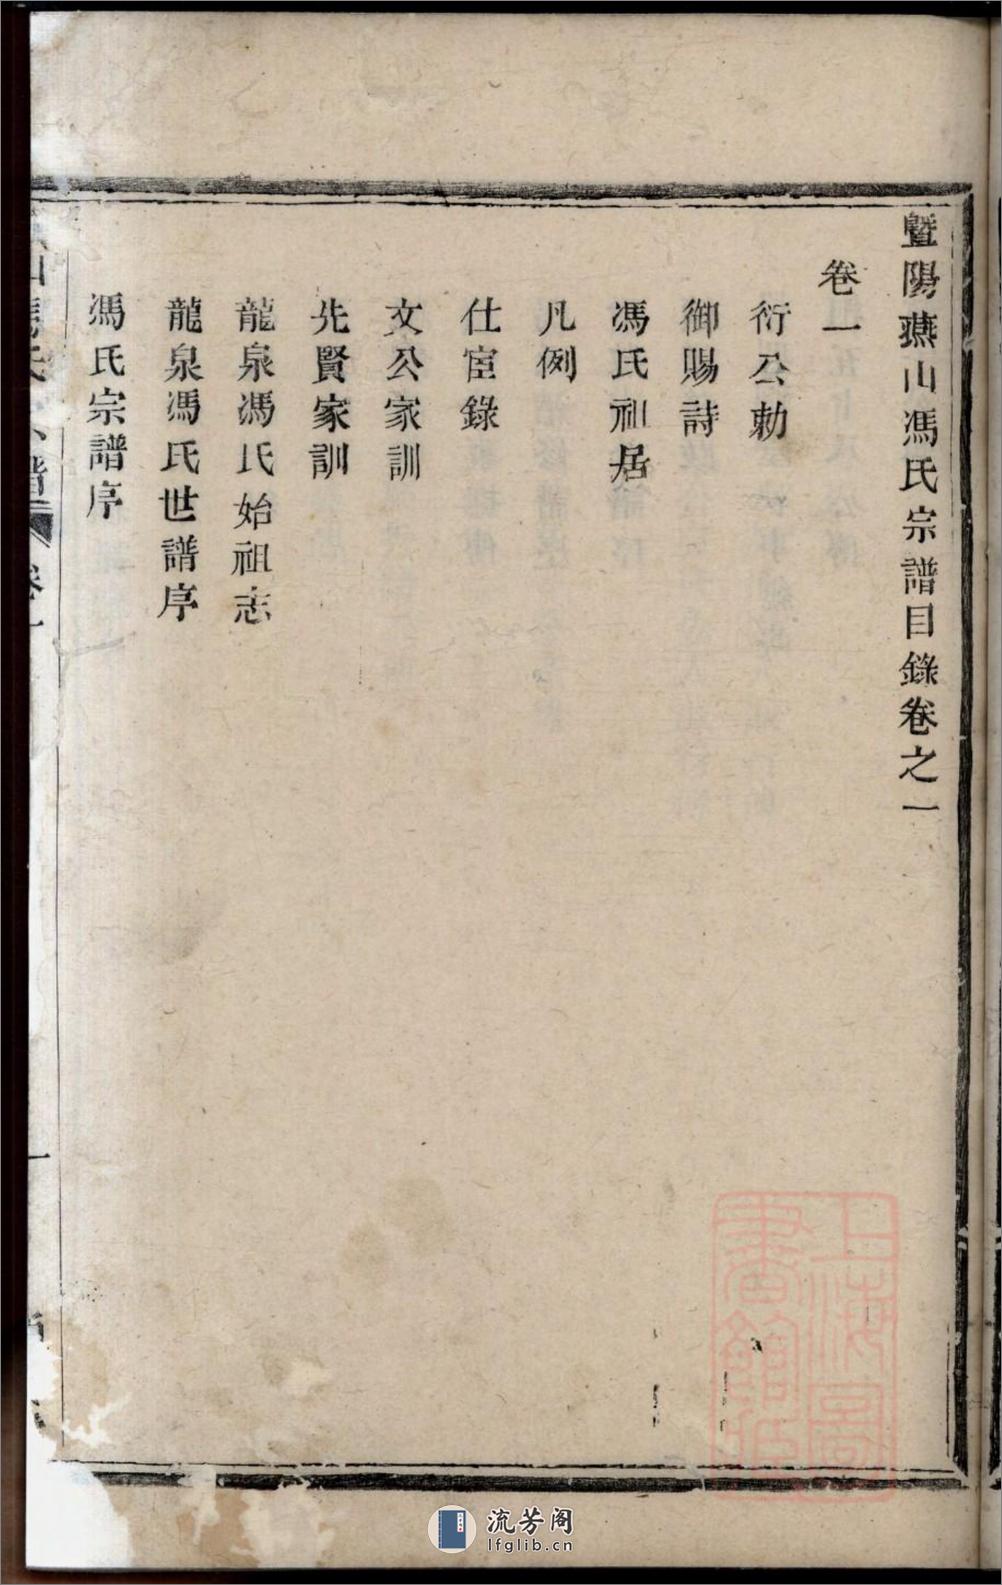 暨陽燕山馮氏宗譜目錄卷之一
卷一
衍公勅
御賜詩
馮氏祖居
凡例
仕宦錄
文公家訓
先賢家訓
龍泉馮氏始祖志
龍泉馮氏世譜序
馮氏宗譜序
上海圖書館藏
流芳阁
lfglib.cn